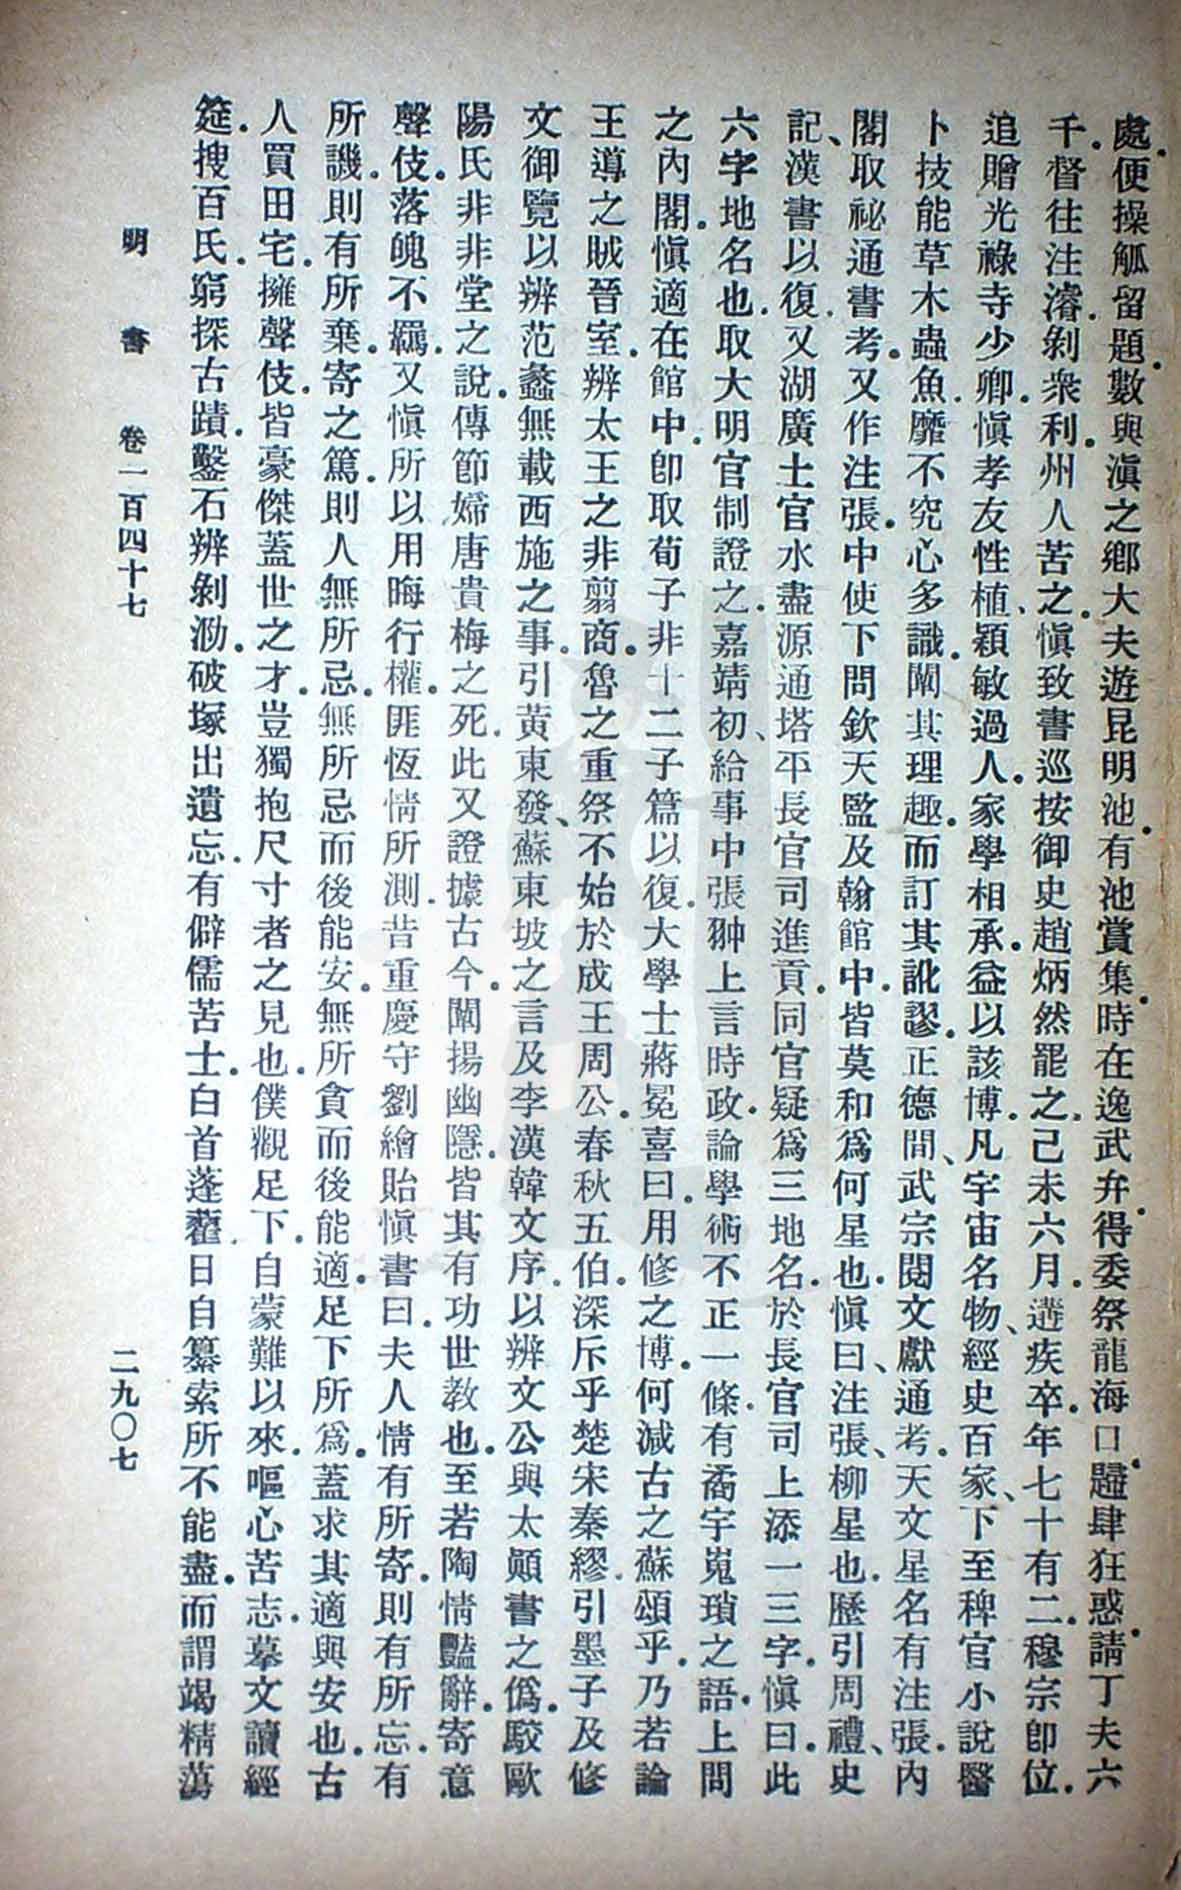 處。便操觚留題。數與滇之鄉大夫遊昆明池。有池賞集。時在逸武弁。得委祭龍海口。歸肆狂惑。請丁夫六
千。督往注濬。剝衆利。州人苦之。愼致書巡按御史趙炳然罷之。己未六月。遘疾卒。年七十有二。穆宗即位。
追贈光祿寺少卿。愼孝友性植、穎敏過人。家學相承。益以該博。凡宇宙名物、經史百家、下至稗官小說醫
卜技能草木蟲魚。靡不究心多識。闡其理趣。而訂其訛謬。正德間、武宗閱文獻通考。天文星名有注張。內
閣取祕通書考。又作注張。中使下問欽天監及翰館中。皆莫和爲何星也。愼曰、注張、柳星也。歷引周禮、史
記、漢書以復。又湖廣土官水盡源通塔平長官司進貢。同官疑爲三地名。於長官司上添一三字。愼曰。此
六字地名也。取大明官制證之。嘉靖初、給事中張翀上言時政。論學術不正一條。有矞宇嵬瑣之語。上問
之內閣。愼適在館中。卽取荀子非十二子篇以復。大學士蔣冕喜曰。用修之博。何減古之蘇頌乎。乃若論
王導之賊晉室。辨太王之非翦商。魯之重祭。不始於成王周公。春秋五伯。深斥乎楚宋秦繆。引墨子及修
文御覽以辨范蠡無載西施之事。引黃東發、蘇東坡之言及李漢韓文序。以辨文公與太顚書之僞。駁歐
陽氏非非堂之說。傳節婦唐貴梅之死。此又證據古今。闡揚幽隱。皆其有功世教也。至若陶情豔辭。寄意
聲伎。落魄不羈。又愼所以用晦行權。匪恆情所測。昔重慶守劉繪貽愼書曰。夫人情有所寄。則有所忘。有
所譏。則有所棄。寄之篤。則人無所忌。無所忌而後能安。無所貪而後能適。足下所爲。蓋求其適與安也。古
人買田宅。擁聲伎。皆豪傑蓋世之才。豈獨抱尺寸者之見也。僕觀足下。自蒙難以來。嘔心苦志。摹文讀經
筵。搜百氏。窮探古蹟。鑿石辨剝泐。破塚出遺忘。有僻儒苦士。白首蓬藋。日自纂索所不能盡。而謂竭精蕩
明書 卷一百四十七 二九〇七